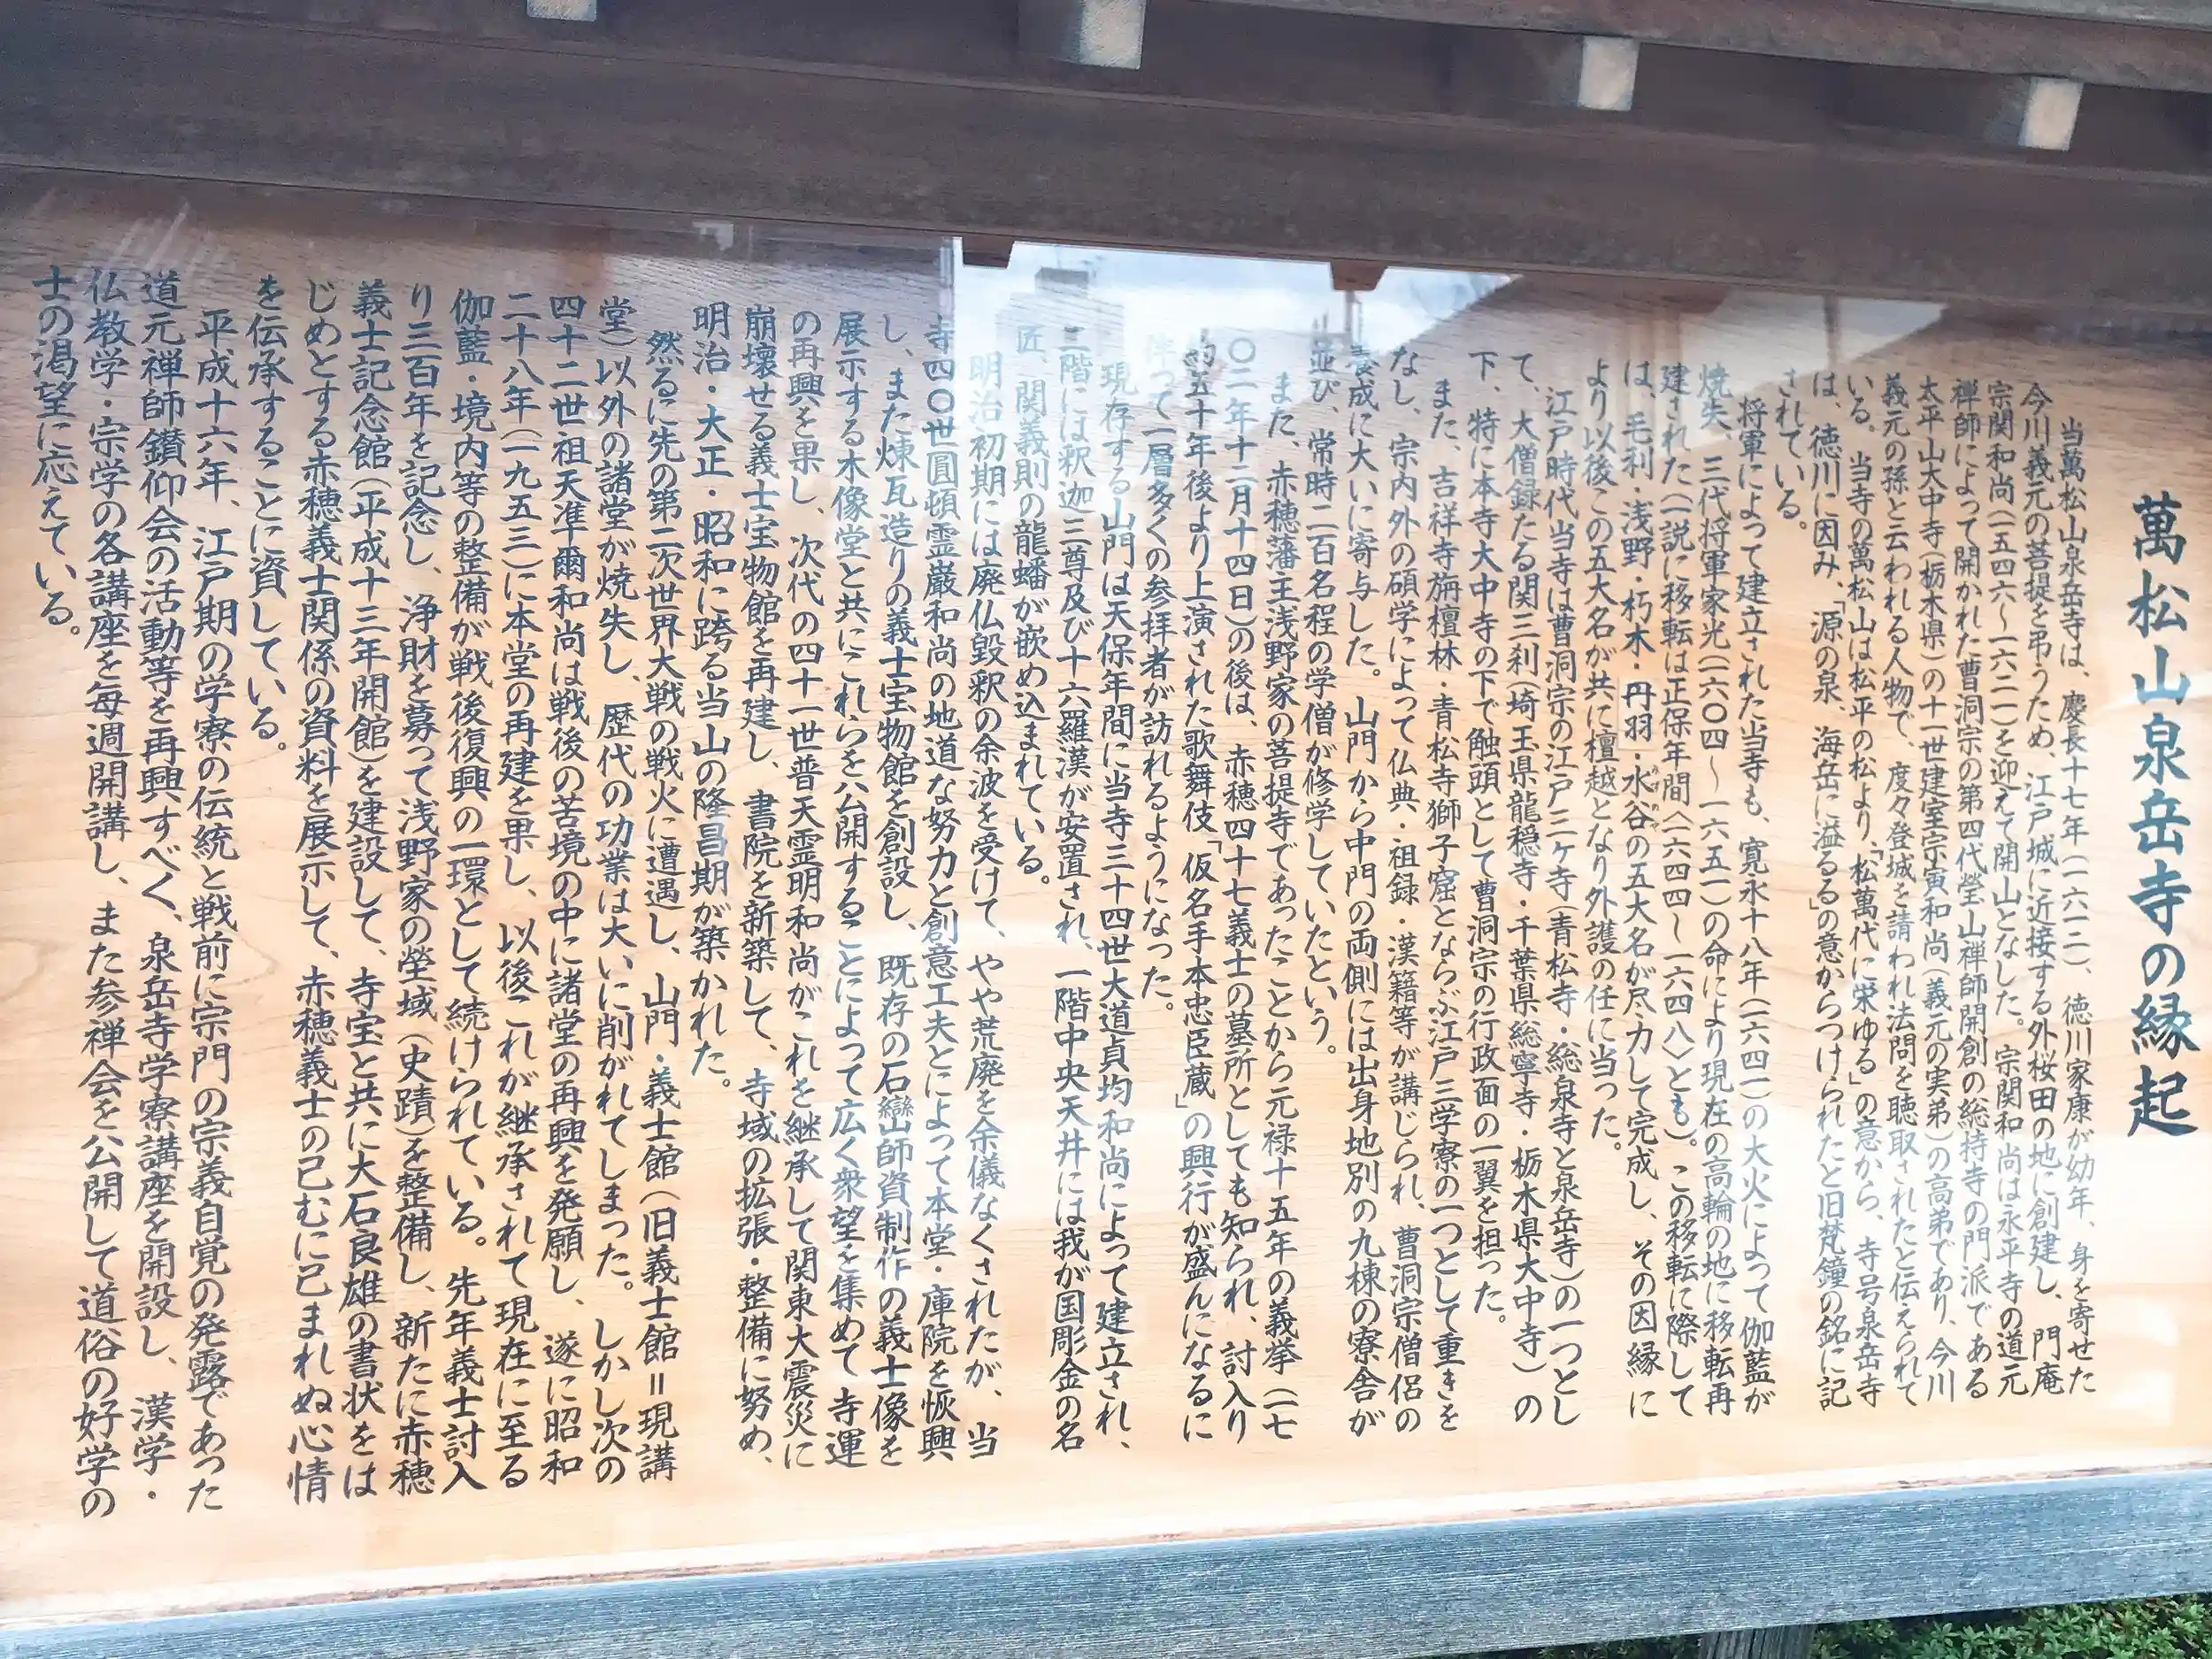 萬松山泉岳寺の縁起
当萬松山泉岳寺は、慶長十七年(一六一二)、徳川家康が幼年、身を寄せた
今川義元の菩提を弔うため、江戸城に近接する外桜田の地に創建し、門庵
宗関和尚(一五四六〜一六二一)を迎えて開山となした。宗関和尚は永平寺の道元
禅師によって開かれた曹洞宗の第四代瑩山禅師開創の総持寺の門派である
太平山大中寺(栃木県)の十一世建室宗寅和尚(義元の実弟)の高弟であり、今川
義元の孫と云われる人物で、度々登城を請われ法問を聴取されたと伝えられて
いる。当寺の萬松山は松平の松より、「松萬代に栄ゆる」の意から、寺号泉岳寺
は、徳川に因み、「源の泉、海岳に溢るる」の意からつけられたと旧梵鐘の銘に記
されている。
将軍によって建立された当寺も、寛永十八年(一六四一)の大火によって伽藍が
焼失、三代将軍家光(一六〇四〜一六五一)の命により現在の高輪の地に移転再
建された(一説に移転は正保年間〈一六四四〜一六四八〉とも)。この移転に際して
は、毛利・浅野・朽木・丹羽・水谷の五大名が尽力して完成し、その因縁に
より以後この五大名が共に檀越となり外護の任に当った。
江戸時代当寺は曹洞宗の江戸三ヶ寺(青松寺・総泉寺と泉岳寺)の一つとし
て、大僧録たる関三刹(埼玉県龍穏寺・千葉県総寧寺・栃木県大中寺)の
下、特に本寺大中寺の下で触頭として曹洞宗の行政面の一翼を担った。
また、吉祥寺旃檀林・青松寺獅子窟とならぶ江戸三学寮の一つとして重きを
なし、宗内外の碩学によって仏典・祖録・漢籍等が講じられ、曹洞宗僧侶の
養成に大いに寄与した。山門から中門の両側には出身地別の九棟の寮舎が
並び、常時二百名程の学僧が修学していたという。
また、赤穂藩主浅野家の菩提寺であったことから元禄十五年の義挙(一七
〇二年十二月十四日)の後は、赤穂四十七義士の墓所としても知られ、討入り
約五十年後より上演された歌舞伎「仮名手本忠臣蔵」の興行が盛んになるに
伴って一層多くの参拝者が訪れるようになった。
現存する山門は天保年間に当寺三十四世大道貞均和尚によって建立され、
二階には釈迦三尊及び十六羅漢が安置され、一階中央天井には我が国彫金の名
匠、関義則の龍蟠が嵌め込まれている。
明治初期には廃仏毀釈の余波を受けて、やや荒廃を余儀なくされたが、当
寺四〇世圓頓霊巌和尚の地道な努力と創意工夫とによって本堂・庫院を恢興
し、また煉瓦造りの義士宝物館を創設し、既存の石巒山師資制作の義士像を
展示する木像堂と共にこれらを公開することによって広く衆望を集めて寺運
の再興を果し、次代の四十一世普天霊明和尚がこれを継承して関東大震災に
崩壊せる義士宝物館を再建し、書院を新築して、寺域の拡張・整備に努め、
明治・大正・昭和に跨る当山の隆昌期が築かれた。
然るに先の第二次世界大戦の戦火に遭遇し、山門・義士館(旧義士館=現講
堂)以外の諸堂が焼失し、歴代の功業は大いに削がれてしまった。しかし次の
四十二世祖天准爾和尚は戦後の苦境の中に諸堂の再興を発願し、遂に昭和
二十八年(一九五三)に本堂の再建を果し、以後これが継承されて現在に至る
伽藍・境内等の整備が戦後復興の一環として続けられている。先年義士討入
り三百年を記念し、浄財を募って浅野家の塋域(史蹟)を整備し、新たに赤穂
義士記念館(平成十三年開館)を建設して、寺宝と共に大石良雄の書状をは
じめとする赤穂義士関係の資料を展示して、赤穂義士の已むに已まれぬ心情
を伝承することに資している。
平成十六年、江戸期の学寮の伝統と戦前に宗門の宗義自覚の発露であった
道元禅師鑽仰会の活動等を再興すべく、泉岳寺学寮講座を開設し、漢学・
仏教学・宗学の各講座を毎週開講し、また参禅会を公開して道俗の好学の
士の渇望に応えている。